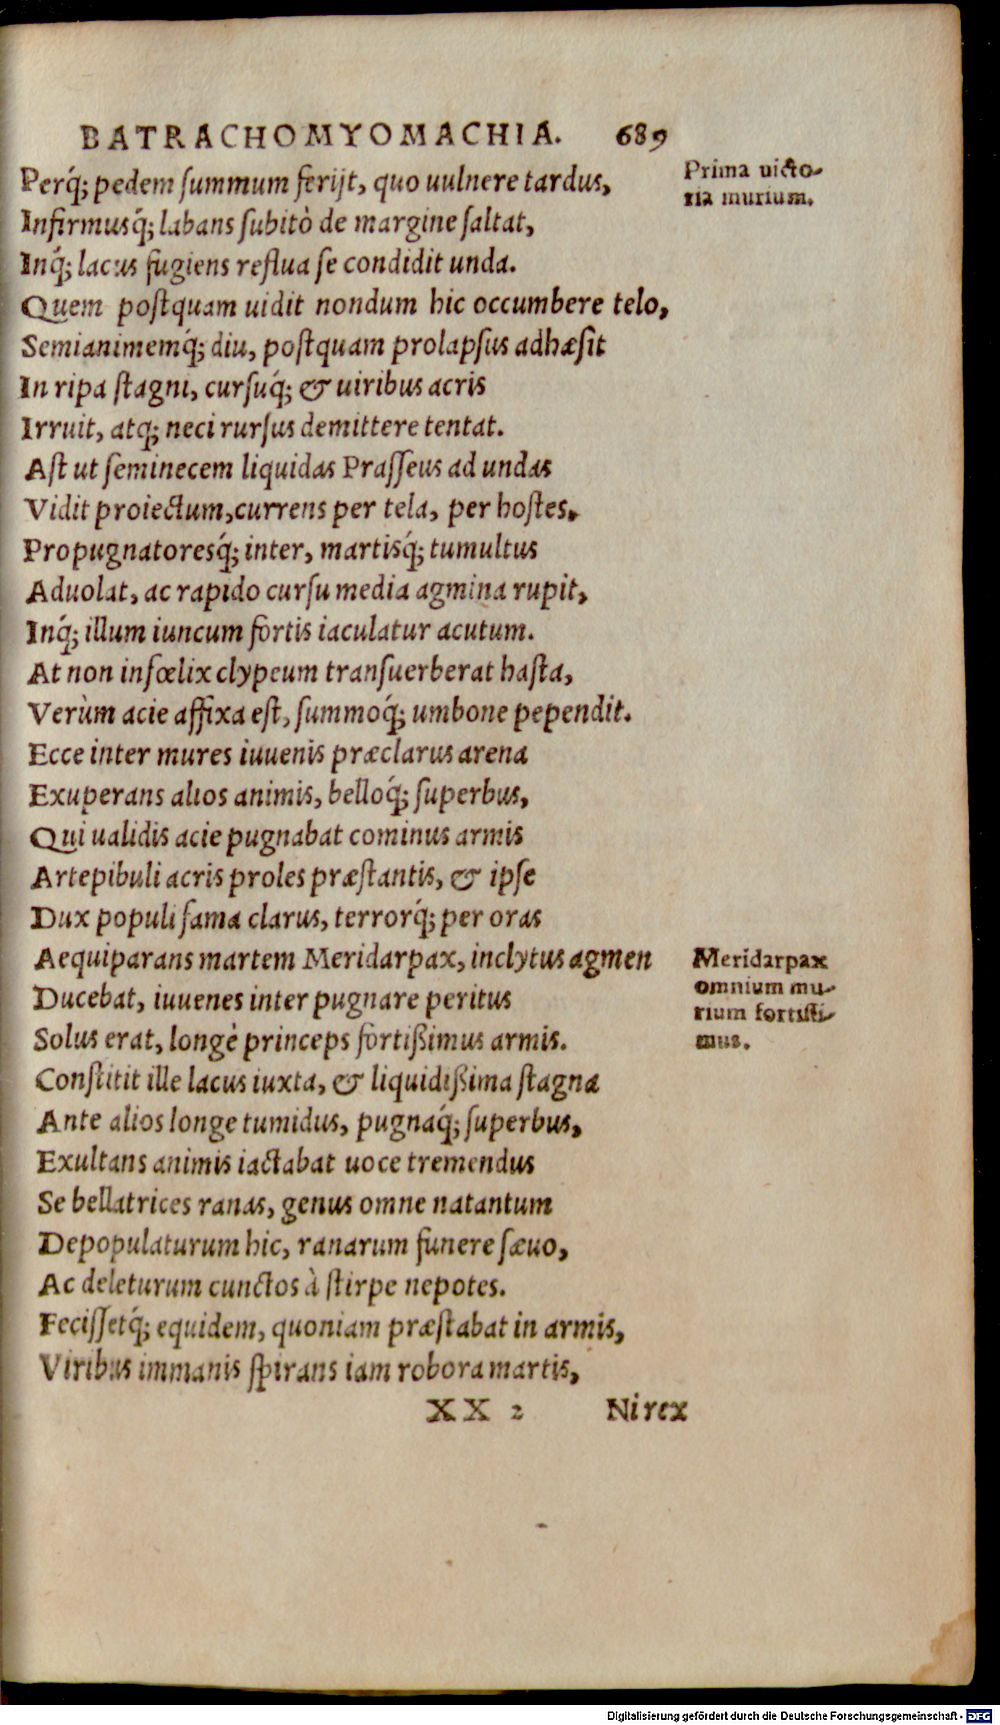 BATRACHOMYOMACHIA. 689
Perq́; pedem ſummum ferijt, quo uulnere tardus,
Infirmusq́; labans ſubitò de margine ſaltat,
Inq́; lacus fugiens reflua ſe condidit unda.
Quem poſtquam uidit nondum hic occumbere telo,
Semianimemq́; diu, poſtquam prolapſus adhæſit
In ripa ſtagni, curſuq́; & uiribus acris
Irruit, atq; neci rurſus demittere tentat.
Aſt ut ſeminecem liquidas Praſſeus ad undas
Vidit proiectum, currens per tela, per hoſtes,
Propugnatoresq́; inter, martisq́; tumultus
Aduolat, ac rapido curſu media agmina rupit,
Inq́; illum iuncum fortis iaculatur acutum.
At non infœlix clypeum tranſuerberat haſta,
Verùm acie affixa eſt, ſummoq́; umbone pependit.
Ecce inter mures iuuenis præclarus arena
Exuperans alios animis, belloq́; ſuperbus,
Qui ualidis acie pugnabat cominus armis
Artepibuli acris proles præſtantis, & ipſe
Dux populi fama clarus, terrorq́; per oras
Aequiparans martem Meridarpax, inclytus agmen
Ducebat, iuuenes inter pugnare peritus
Solus erat, longè princeps fortißimus armis.
Conſtitit ille lacus iuxta, & liquidißima ſtagna
Ante alios longe tumidus, pugnaq́; ſuperbus,
Exultans animis iactabat uoce tremendus
Se bellatrices ranas, genus omne natantum
Depopulaturum hic, ranarum funere ſæuo,
Ac deleturum cunctos à ſtirpe nepotes.
Feciſſetq́; equidem, quoniam præſtabat in armis,
Viribus immanis ſpirans iam robora martis,
XX 2 Ni rex
Prima uicto-
ria murium.
Meridarpax
omnium mu-
rium fortiſſi-
mus.
Digitalisierung gefördert durch die Deutsche Forschungsgemeinschaft - DFG